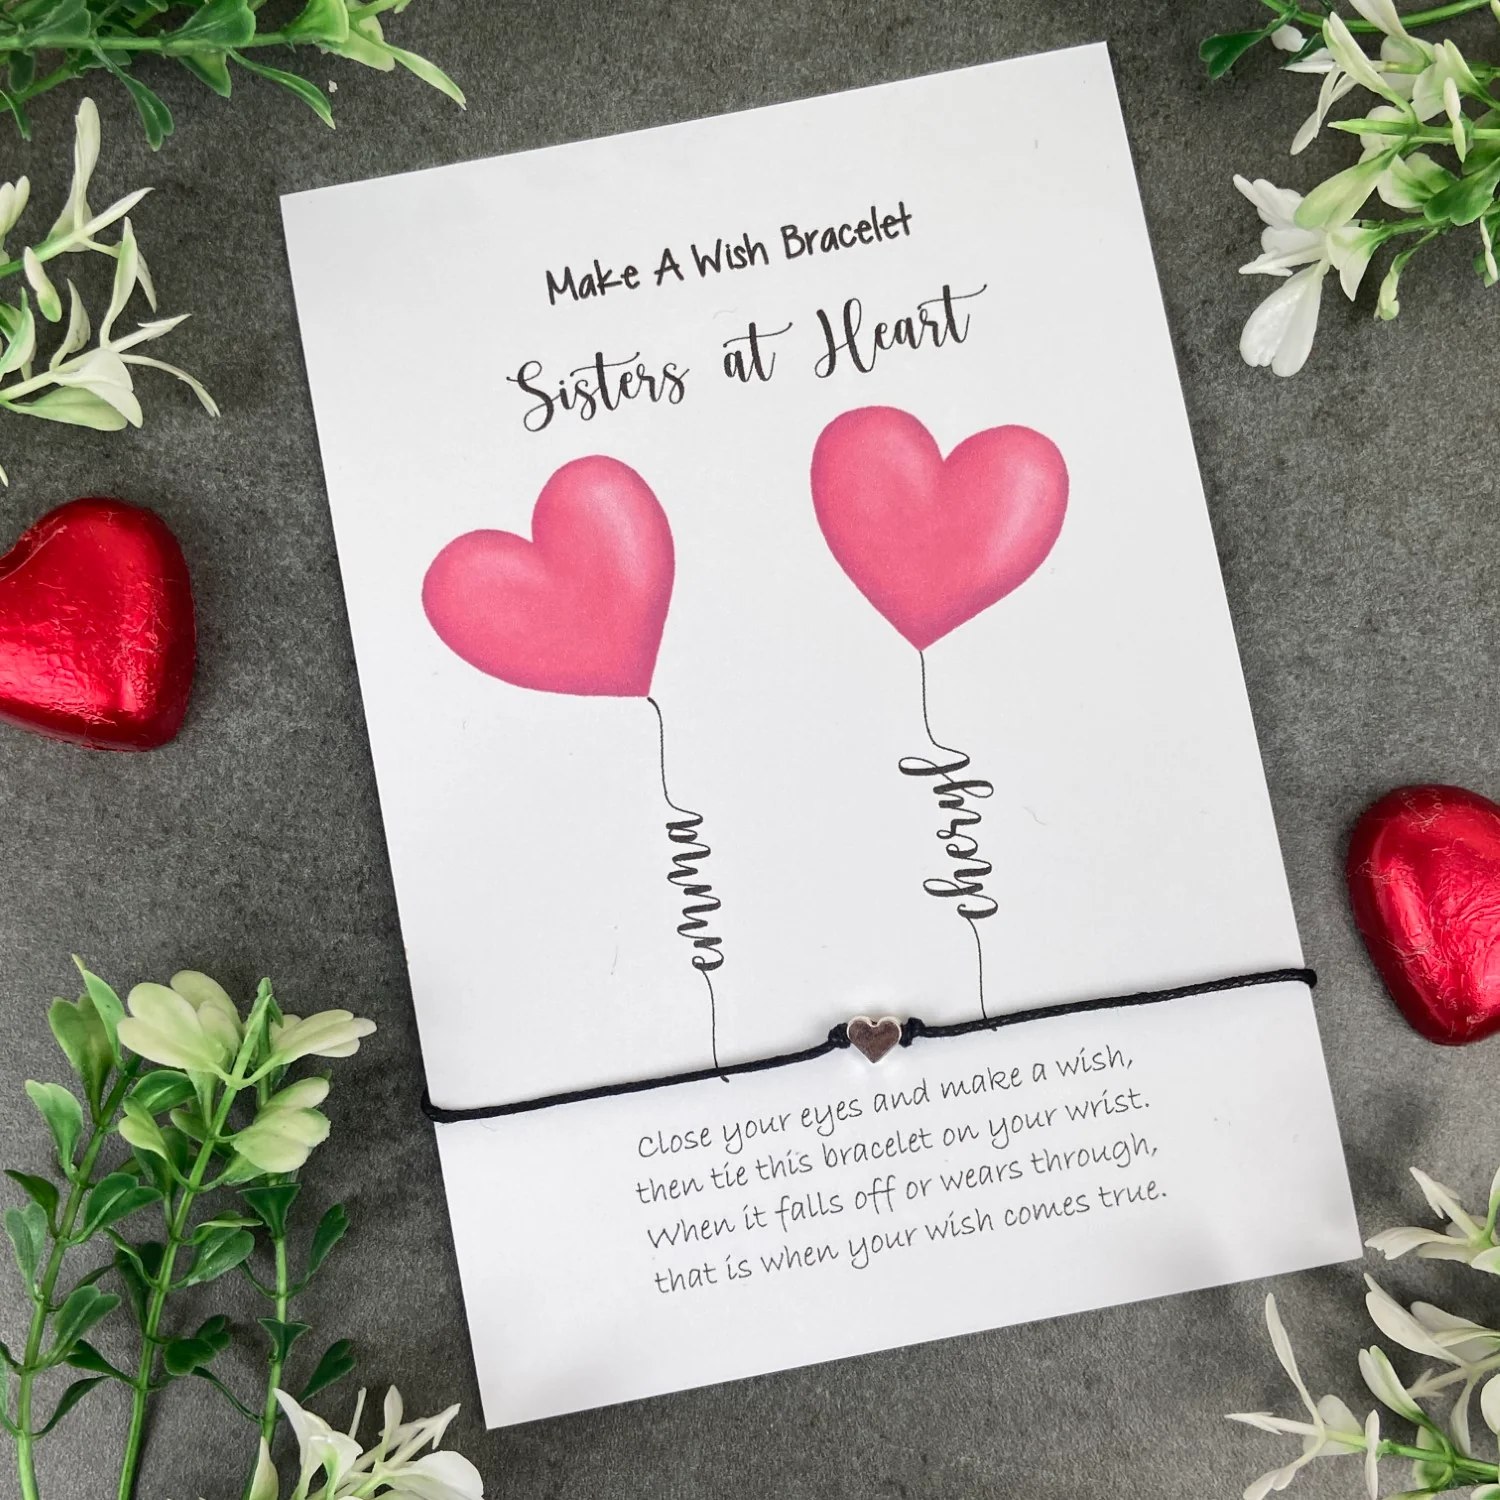 Make A Wish Bracelet
Sisters at Heart
emma
cheryl
Close your eyes and make a wish,
then tie this bracelet on your wrist.
When it falls off or wears through,
that is when your wish comes true.